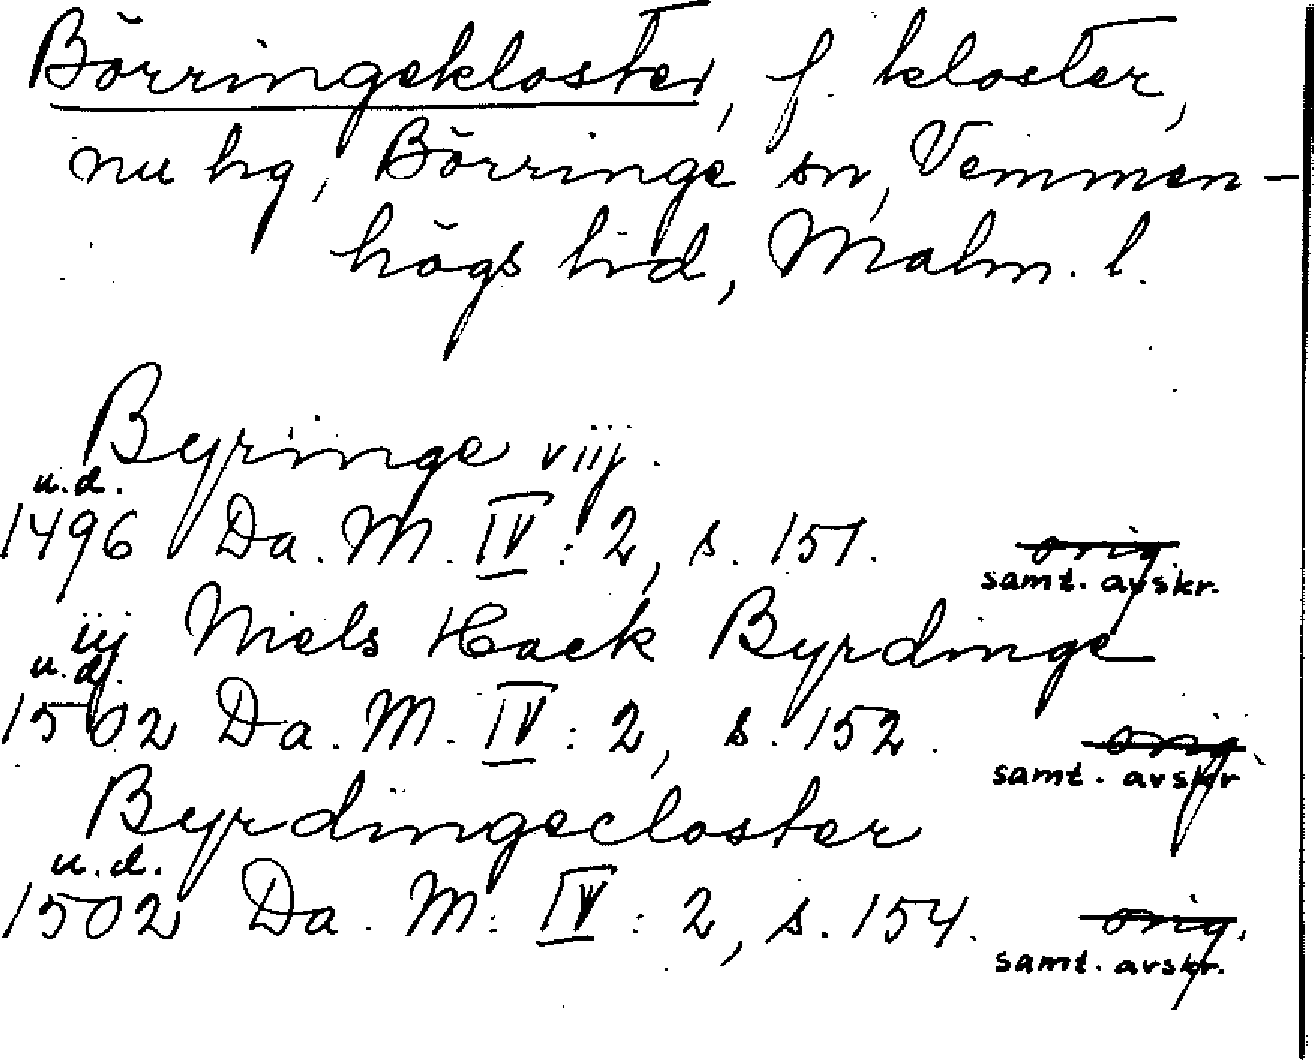 Börringekloster, f. kloster,
nu hg, Börringe sn, Vemmen-
högs hd, Malm. l.
Byringe viij.
u.d.
1496 Da. M. IV: 2, s. 151. orig
samt. avskr.
iij Niels Hack Byrdinge
u.d.
1502 Da. M. IV: 2, s. 152. orig.
samt. avskr
Byrdingecloster
u.d.
1502 Da. M. IV: 2, s. 154. orig.
samt. avskr.